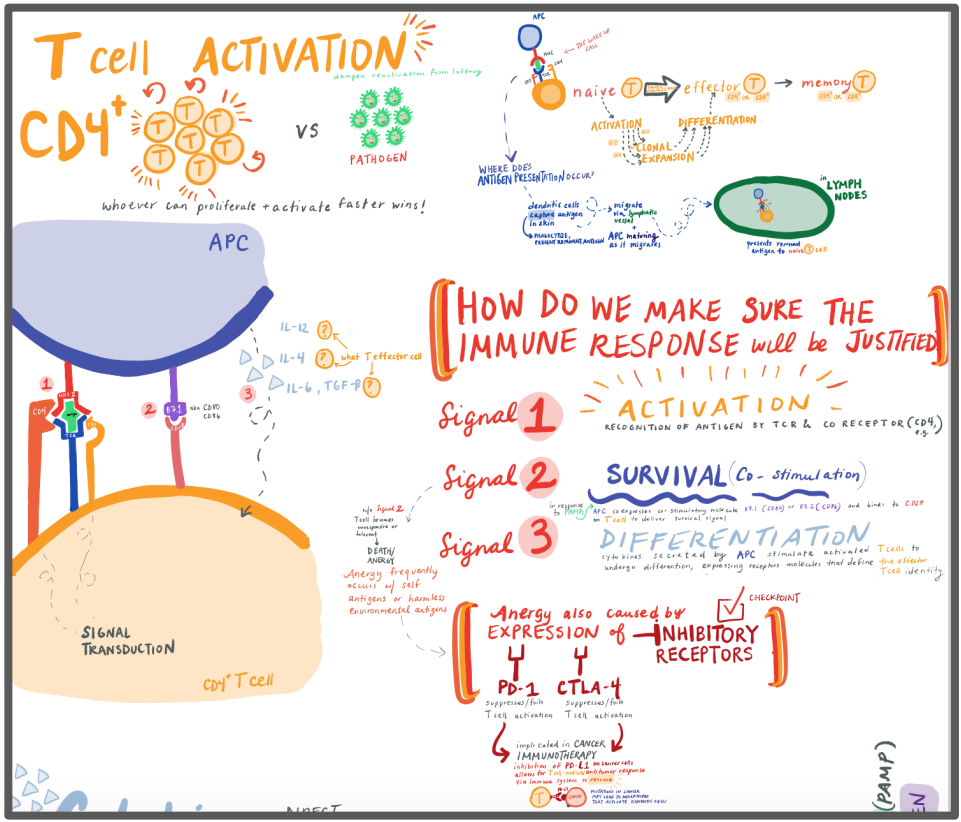 T cell ACTIVATION
dampen reactivation from latency
CD4+
T
T
T
T
T
T
T
VS
PATHOGEN
whoever can proliferate + activate faster wins!
APC
THE WAKE UP CALL
MHC
TCR
CD4
naive T
effector T
CD4+ OR CD8+
memory T
CD4+ OR CD8+
ACTIVATION
CLONAL EXPANSION
DIFFERENTIATION
WHERE DOES
ANTIGEN PRESENTATION OCCUR?
dendritic cells
capture antigen
in skin
migrate
via lymphatic
vessel
+
APC maturing
as it migrates
in LYMPH
NODES
presents remnant
antigen to naive T cell
APC
IL-12 ?
IL-4 ?
IL-6, TGF-β ?
what T effector cell
1
2
3
MHC 2
CD4
TCR
CD3
B7.1
aka CD80
CD86
CD28
SIGNAL
TRANSDUCTION
CD4+ T cell
HOW DO WE MAKE SURE THE
IMMUNE RESPONSE will be JUSTIFIED
Signal 1
ACTIVATION
RECOGNITION OF ANTIGEN BY TCR & CO RECEPTOR (CD4,
e.g.
Signal 2
SURVIVAL (Co-stimulation)
in response
to PAMPs
APC coexpresses co-stimulatory molecule B7.1 (CD80) or B7.2 (CD86) and binds to CD28
on T cell to deliver survival signal
Signal 3
DIFFERENTIATION
cytokines secreted by APC stimulate activated T cells to
undergo differention, expressing receptors molecules that define the effector
T cell identity
w/o Signal 2
T cell becomes
unresponsive or
tolerant
DEATH/
ANERGY
Anergy frequently
occurs w/ self
antigens or harmless
environmental antigens
Anergy also caused by
EXPRESSION of INHIBITORY
RECEPTORS
CHECKPOINT
PD-1
suppresses/foils
T cell activation
CTLA-4
suppresses/foils
T cell activation
implicated in CANCER
IMMUNOTHERAPY
inhibition of PD-L1 on cancer cells
allows for T cell-mediated antitumor response
via immune system to resume
T
MUTATIONS IN CANCER
MAY LEAD TO NEOEPITOPES
THAT ACTIVATE DENDRITIC CELLS
(PAMP)